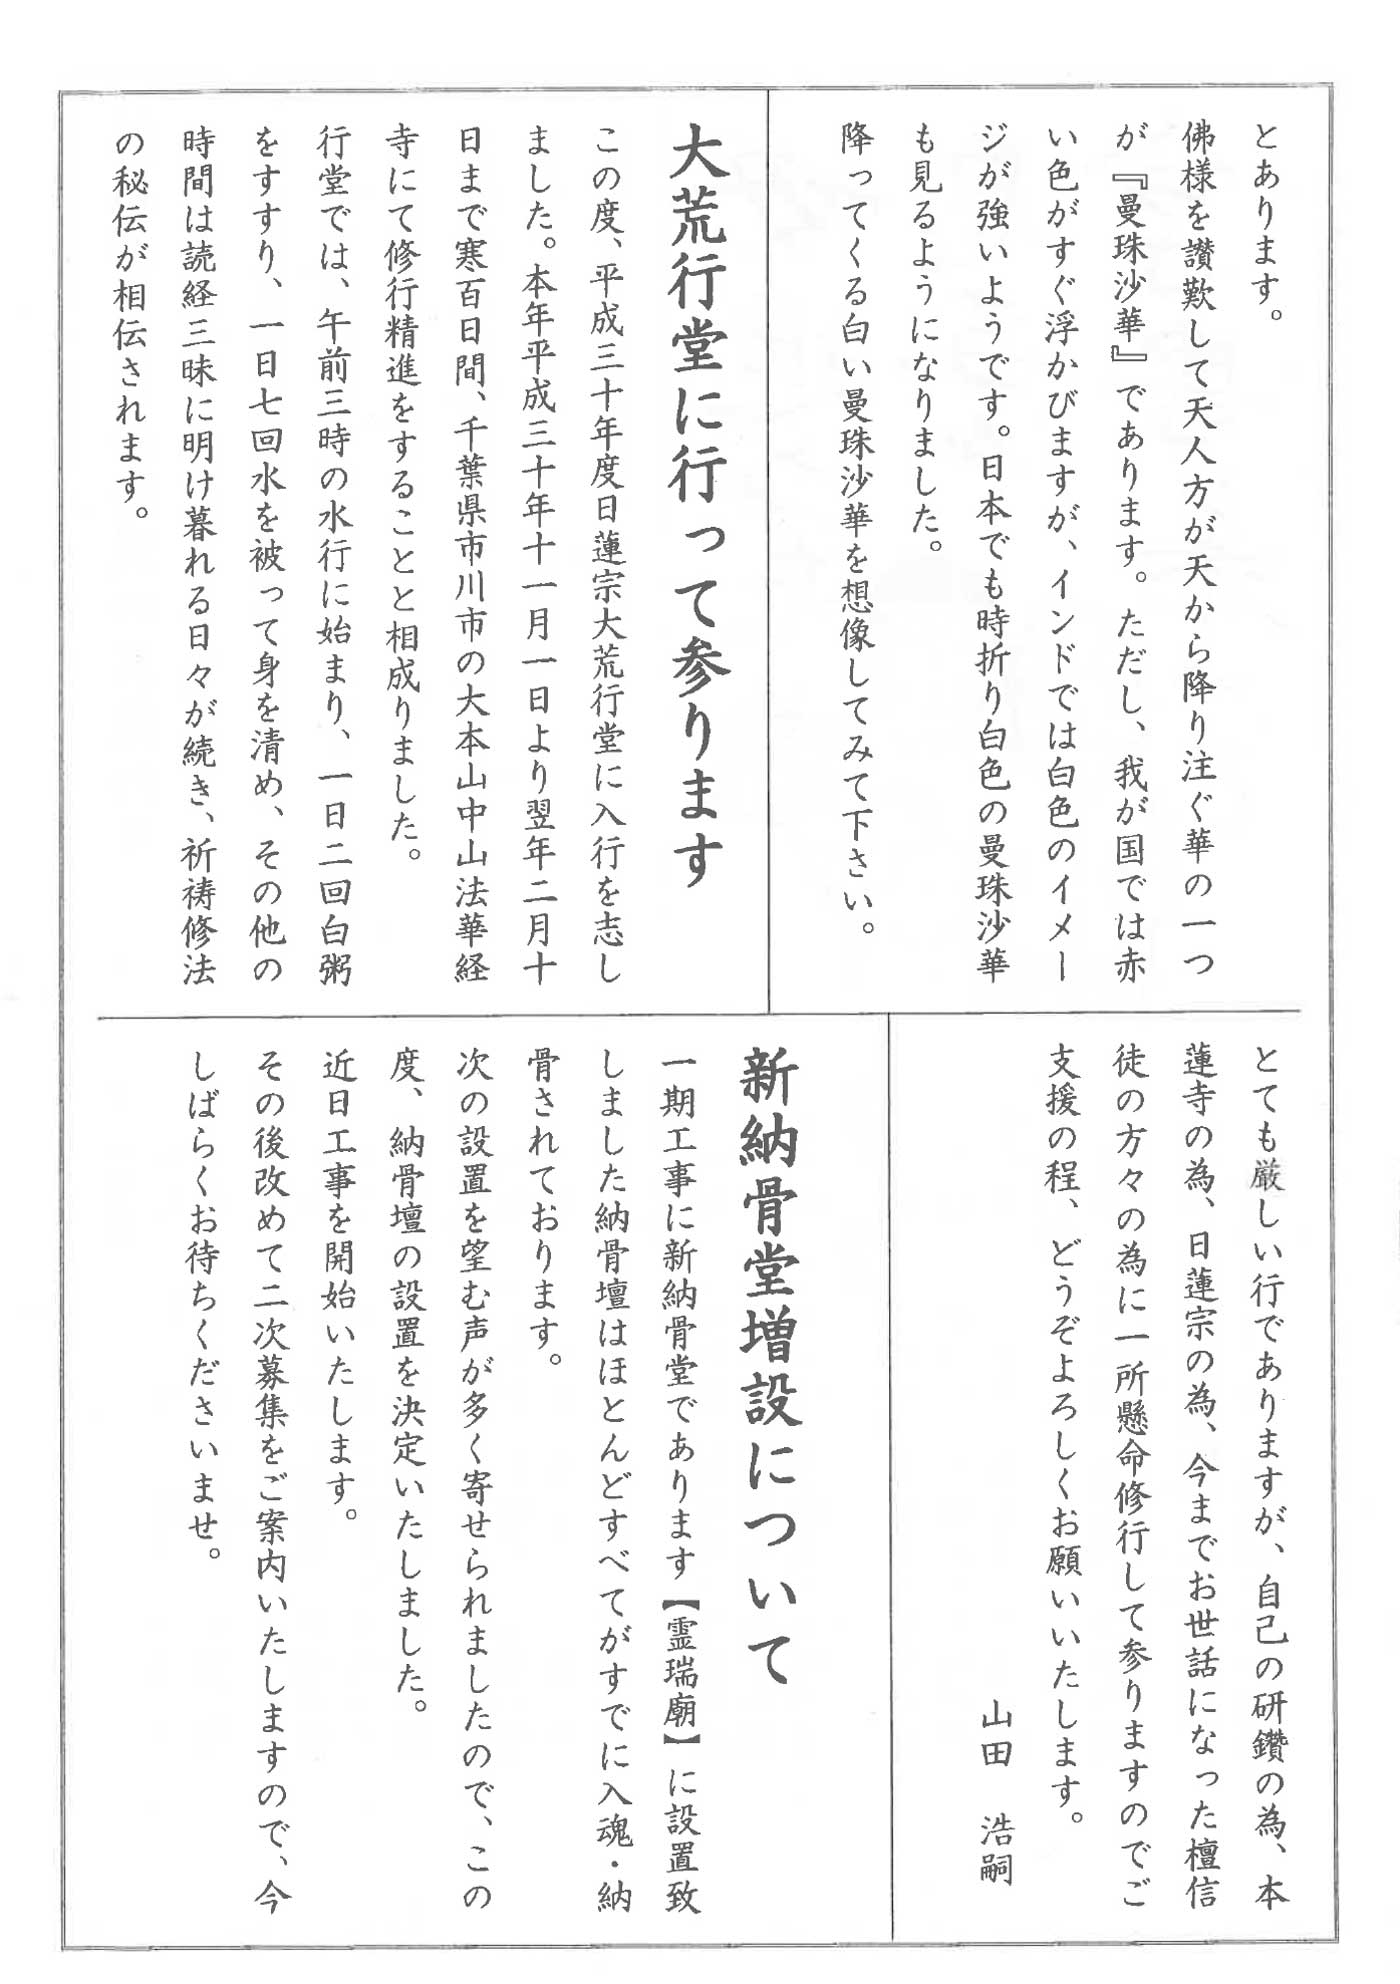 とあります。
佛様を讃歎して天人方が天から降り注ぐ華の一つ
が『曼珠沙華』であります。ただし、我が国では赤
い色がすぐ浮かびますが、インドでは白色のイメー
ジが強いようです。日本でも時折り白色の曼珠沙華
も見るようになりました。
降ってくる白い曼珠沙華を想像してみて下さい。
大荒行堂に行って参ります
この度、平成三十年度日蓮宗大荒行堂に入行を志し
ました。本年平成三十年十一月一日より翌年二月十
日まで寒百日間、千葉県市川市の大本山中山法華経
寺にて修行精進をすることと相成りました。
行堂では、午前三時の水行に始まり、一日二回白粥
をすすり、一日七回水を被って身を清め、その他の
時間は読経三昧に明け暮れる日々が続き、祈祷修法
の秘伝が相伝されます。
とても厳しい行でありますが、自己の研鑽の為、本
蓮寺の為、日蓮宗の為、今までお世話になった檀信
徒の方々の為に一所懸命修行して参りますのでご
支援の程、どうぞよろしくお願いいたします。
山田　浩嗣
新納骨堂増設について
一期工事に新納骨堂であります【霊瑞廟】に設置致
しました納骨壇はほとんどすべてがすでに入魂・納
骨されております。
次の設置を望む声が多く寄せられましたので、この
度、納骨壇の設置を決定いたしました。
近日工事を開始いたします。
その後改めて二次募集をご案内いたしますので、今
しばらくお待ちくださいませ。